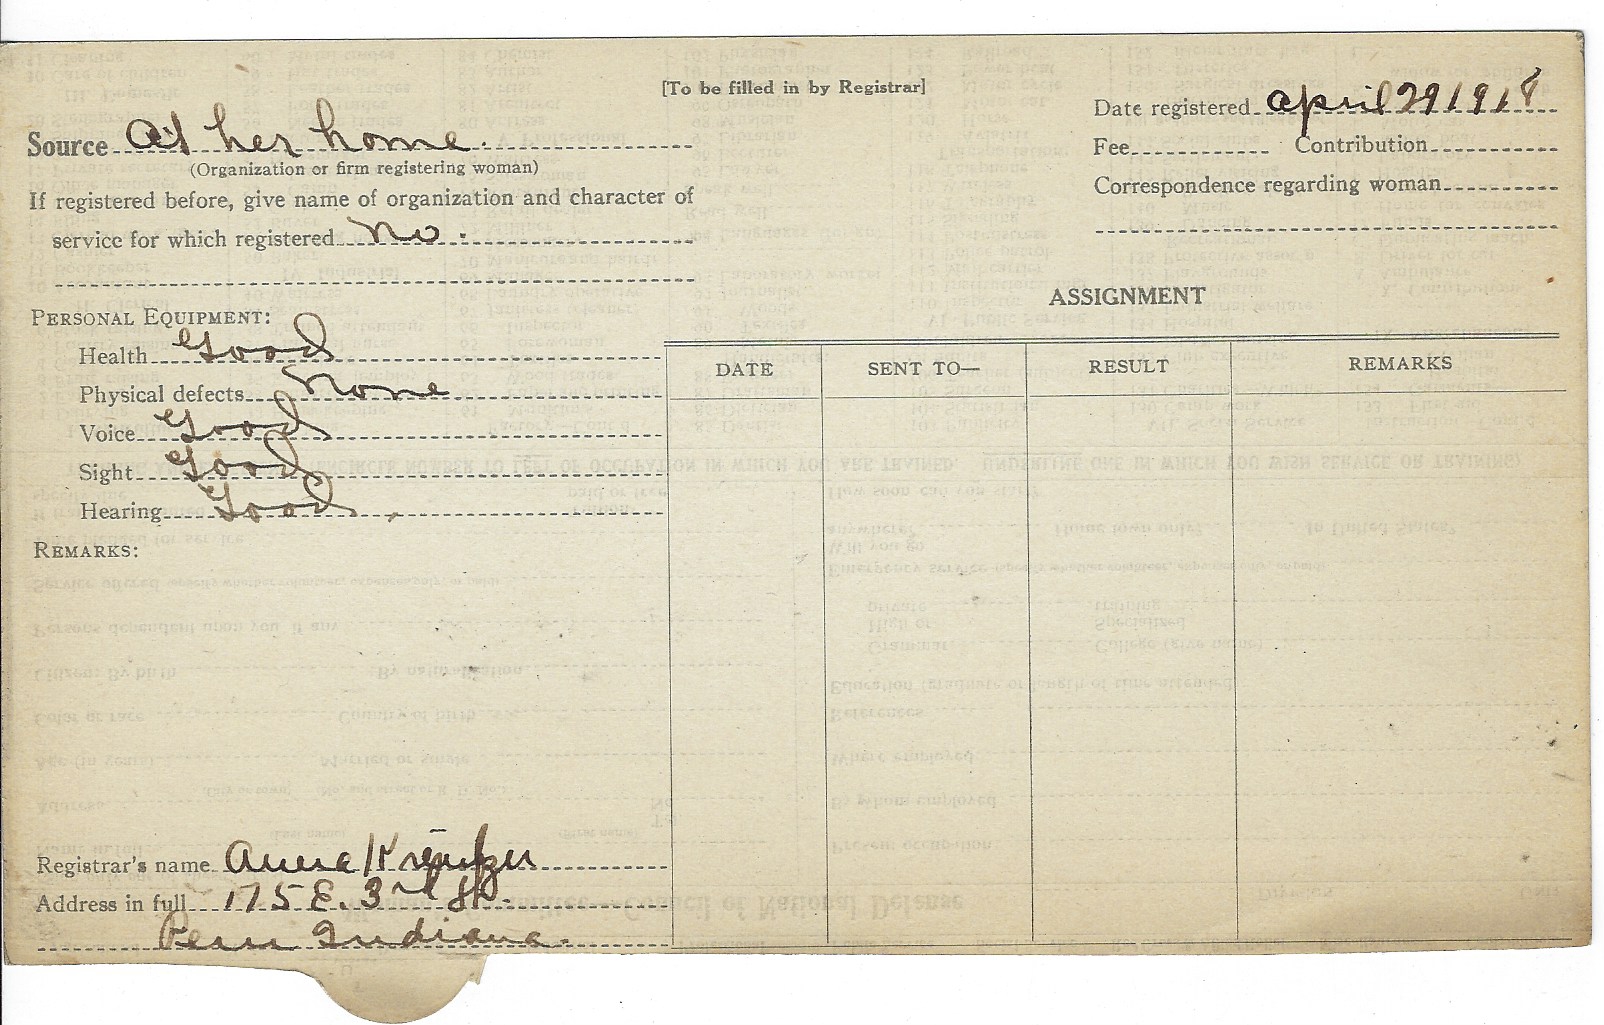 [To be filled in by Registrar]
Source At her home.
(Organization or firm registering woman)
If registered before, give name of organization and character of
service for which registered No.
Date registered April 29 1918
Fee Contribution
Correspondence regarding woman
PERSONAL EQUIPMENT:
Health Good
Physical defects None
Voice Good
Sight Good
Hearing Good
REMARKS:
Registrar's name Anna Kreutzer
Address in full 175 E. 3rd St.
Peru Indiana.
ASSIGNMENT
DATE SENT TO— RESULT REMARKS